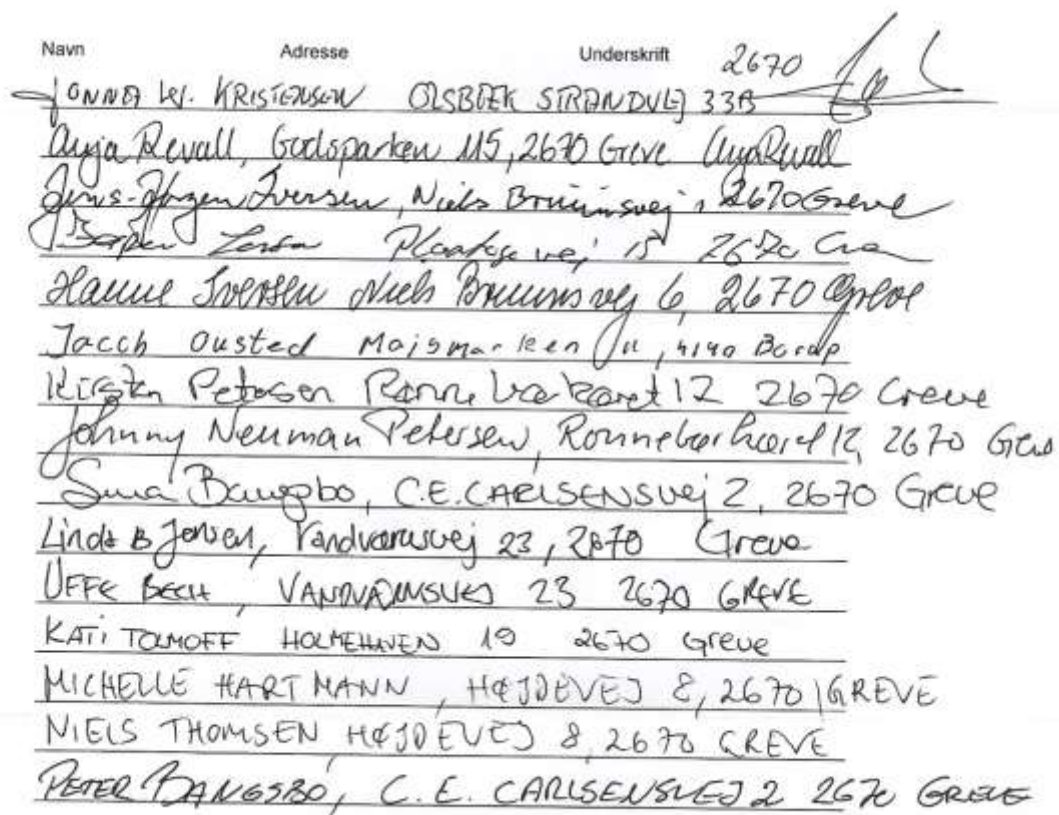 Navn Adresse Underskrift
JONNA W. KRISTENSEN OLSBÆK STRANDVEJ 33B 2670
Anja Revall, Godsparken 115, 2670 Greve Anja Revall
Jens-Jørgen Iversen, Niels Bruunsvej, 2670 Greve
Jesper vej 15 2670
Hanne Iversen Niels Bruuns vej 6, 2670 Greve
Jacob Ousted Majsmarken 11, 4140 Borup
Kirsten Petersen Rønnebærkæret 12 2670 Greve
Johnny Neuman Petersen, Rønnebærkæret 12, 2670
Bangsbo, C.E. CARLSENSVej 2, 2670 Greve
Linda B Jensen, Vandværksvej 23, 2670 Greve
UFFE BECH, VANDVÆRKSVEJ 23 2670 GREVE
KATI TOLMOFF HOLMEHAVEN 19 2670 Greve
MICHELLE HARTMANN, HØJDEVEJ 8, 2670 GREVE
NIELS THOMSEN HØJDEVEJ 8, 2670 GREVE
PETER BANGSBO, C. E. CARLSENSVEJ 2 2670 GREVE